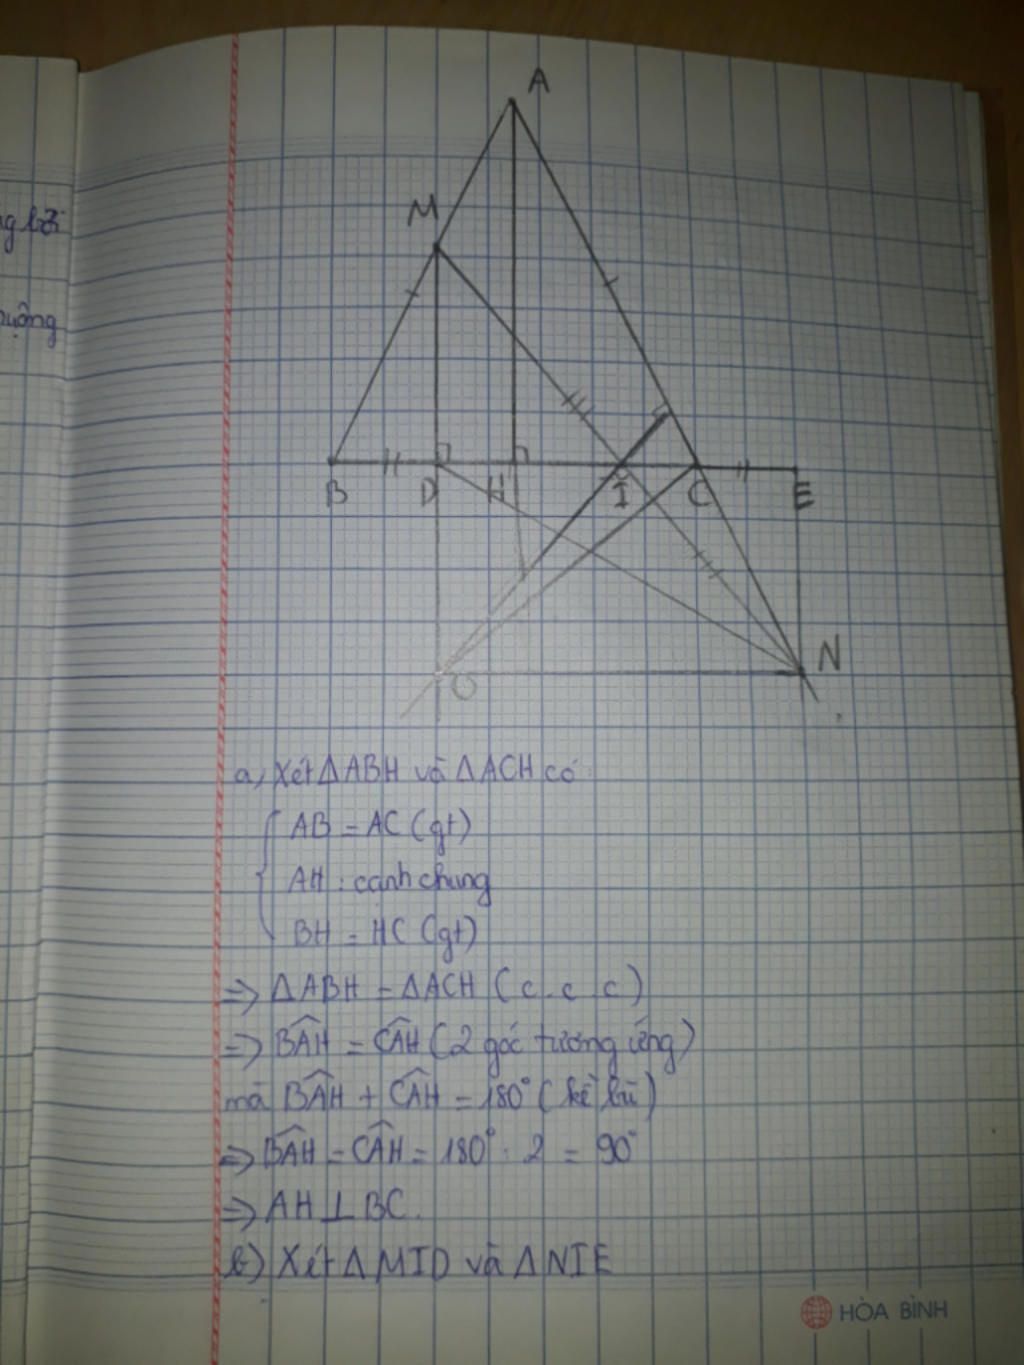 A
M
B D H I C E
N
O
a, Xét ΔABH và ΔACH có:
AB = AC (gt)
AH : cạnh chung
BH = HC (gt)
=> ΔABH = ΔACH (c.c.c)
=> BÂH = CÂH (2 góc tương ứng)
mà BÂH + CÂH = 180° (kề bù)
=> BÂH = CÂH = 180° : 2 = 90°
=> AH ⊥ BC.
b) Xét ΔMID và ΔNIE
HÒA BÌNH